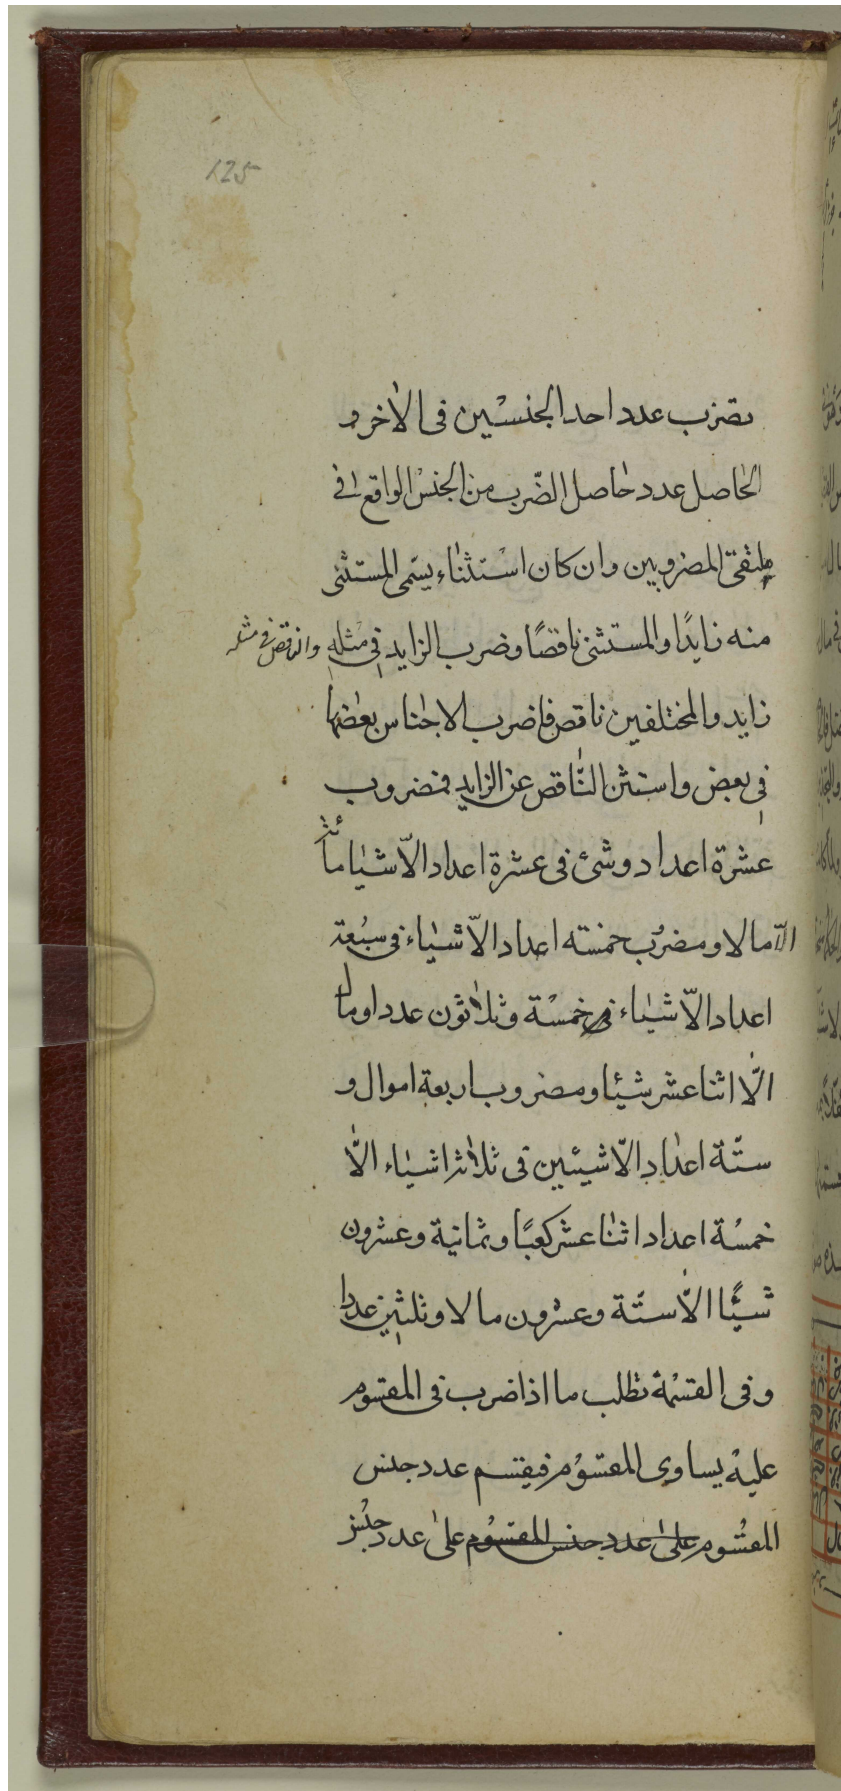 125
تضرب عدد احد الجنسين فى الاخر و
الحاصل عدد حاصل الضّرب من الجنس الواقع فى
ملتقى المضروبين وان كان استثناء يسمى المستثنى
منه زايدًا والمستثنى ناقصًا وضرب الزايد فى مثله والناقص فى مثله
زايد والمختلفين ناقص فاضرب الاجناس بعضها
فى بعض واستثن النّاقص عن الزايد فمضروب
عشرة اعداد وشئ فى عشرة اعداد الاّ شيا مائة
الاّ مالا ومضرب خمسته اعداد الاّ شياء فى سبعة
اعداد الاّ شياء فى خمسة وثلاثون عددا ومال
الّا اثنا عشر شيئا ومضروب اربعة اموال و
ستّة اعداد الاّ شيئين فى ثلاثة اشياء الاّ
خمسة اعداد اثنا عشر كعبًا وثمانية وعشرون
شيئًا الاّ ستّة وعشرون مالا وثلثين عددا
وفى القسمة تطلب ما اذا ضرب فى المقسوم
عليه يساوى المقسوم فيقسم عدد جنس
المقسوم على عدد جنس المقسوم على عدد جنس